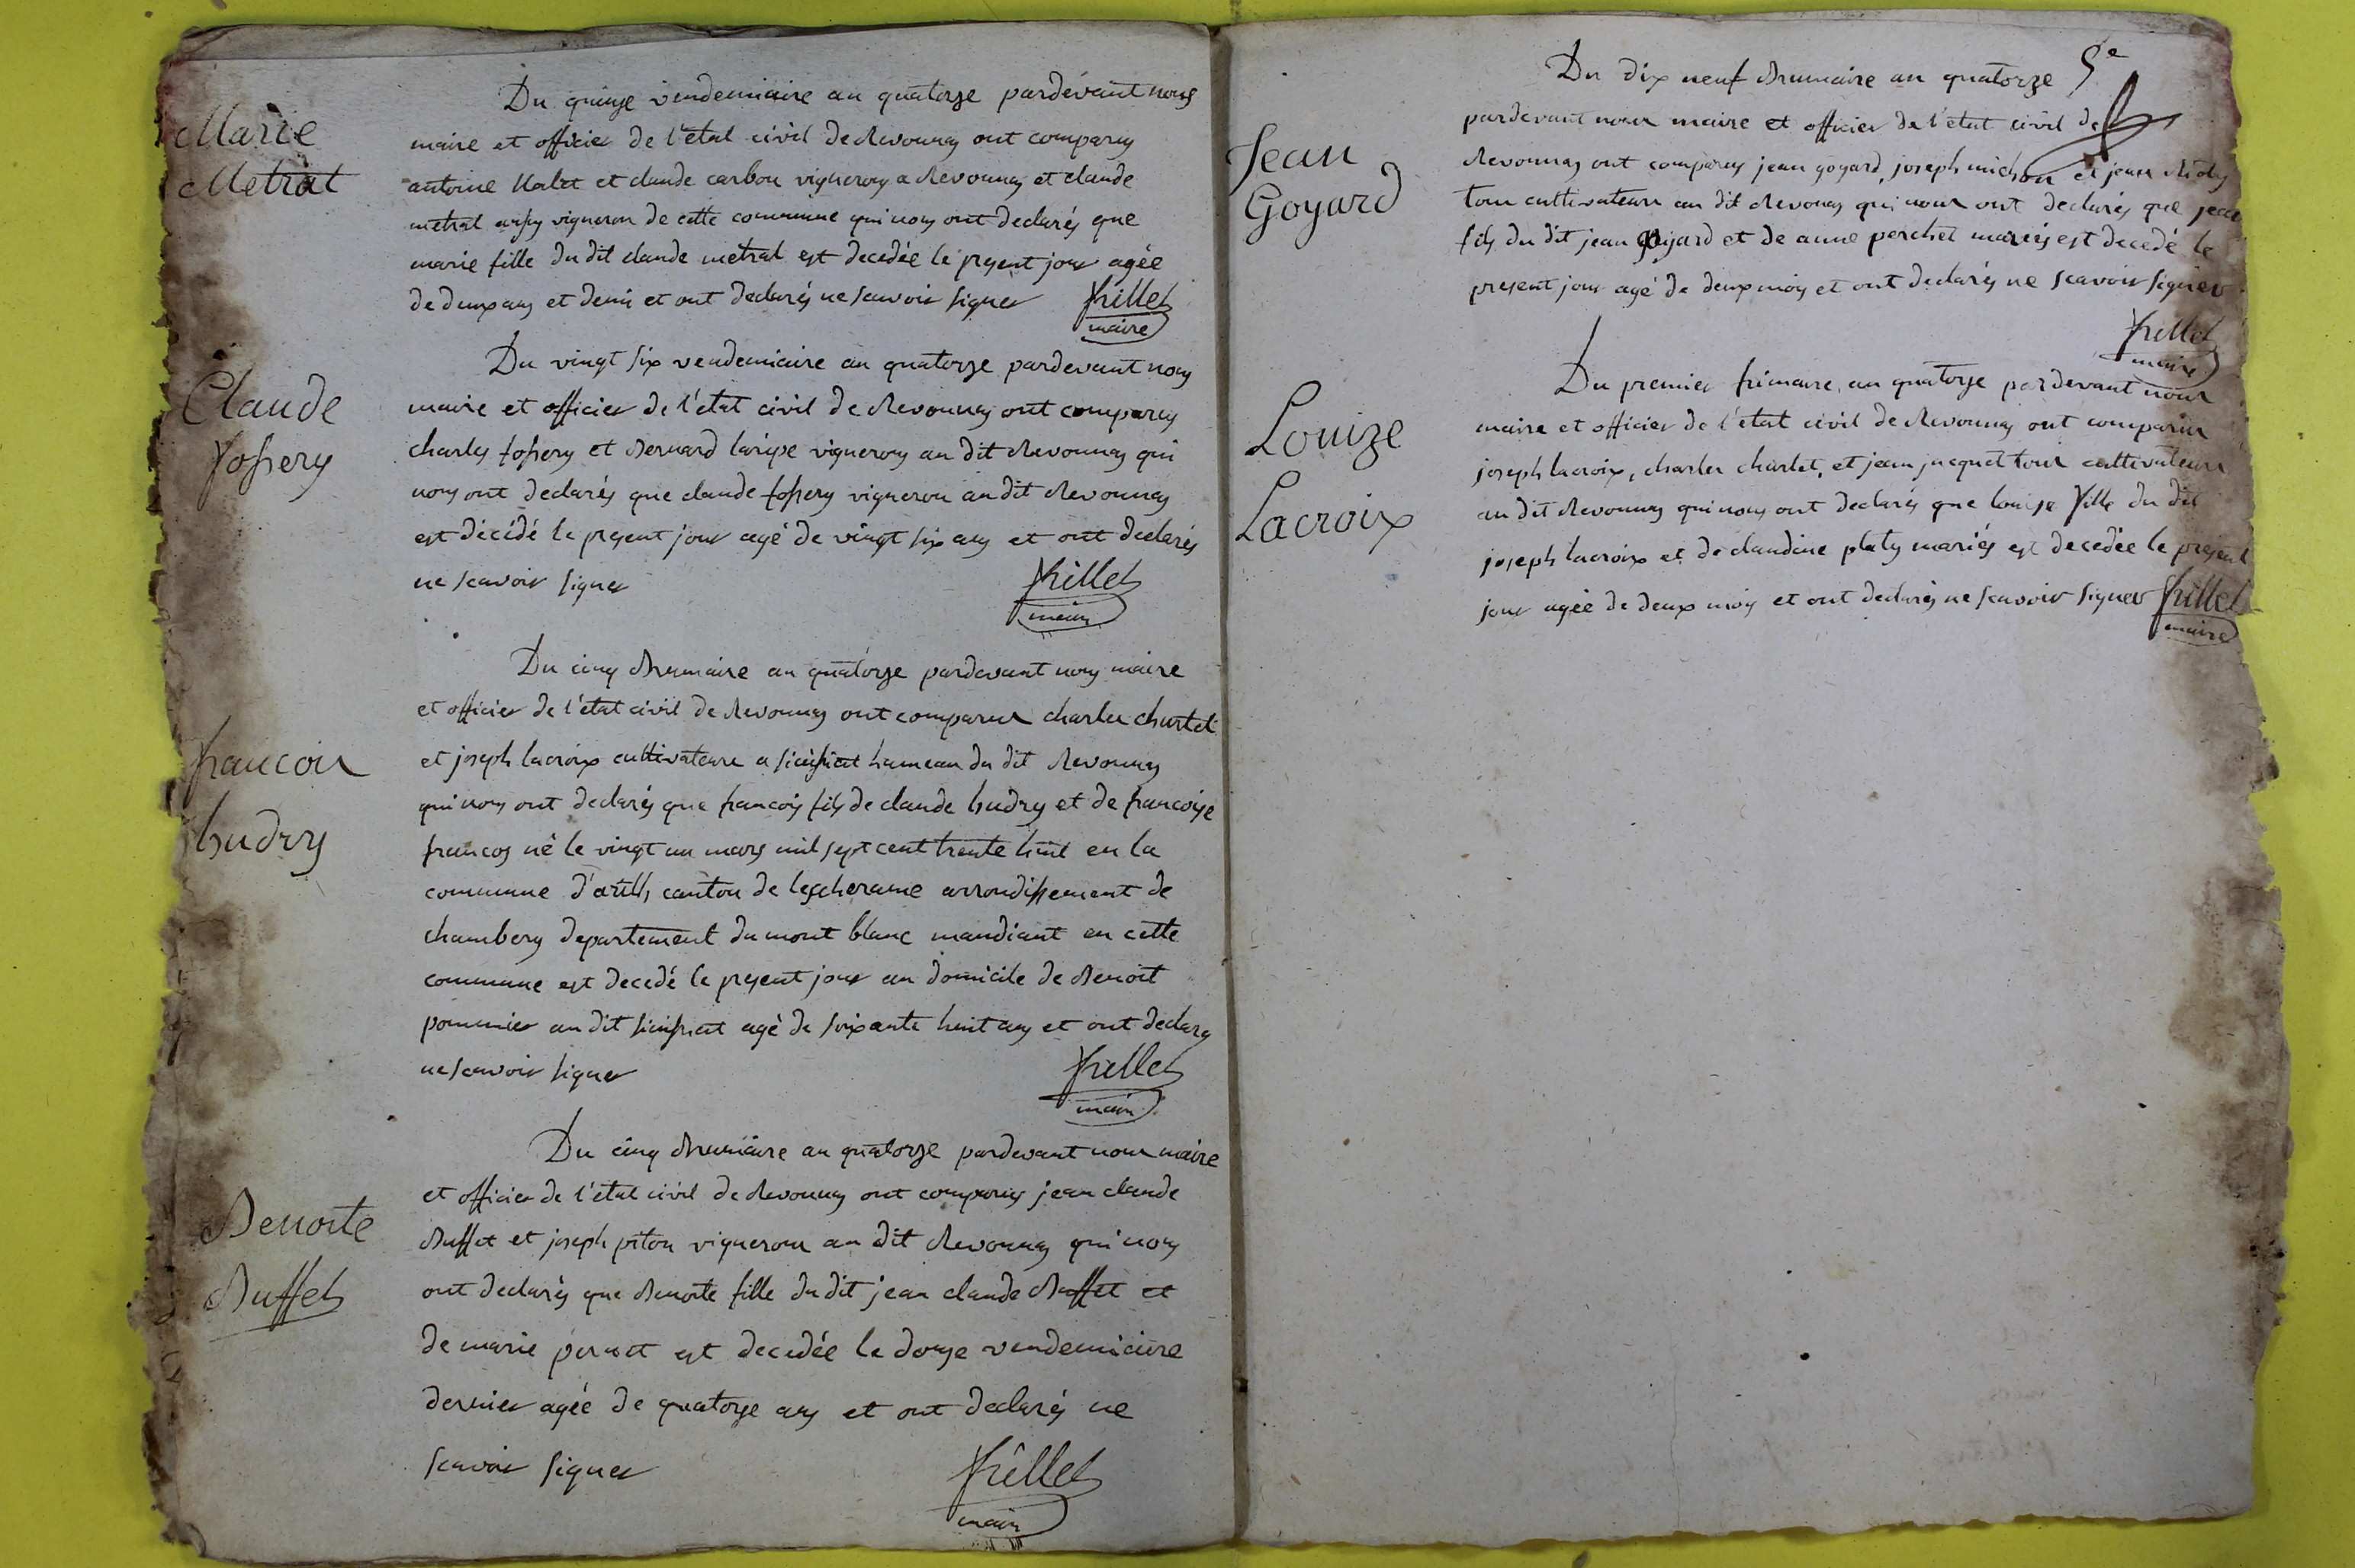 Marie
Metrat
Du quinze vendemiaire an quatorze pardevant nous
maire et officier de l'etat civil de Revonnas ont comparus
antoine et claude carbon vignerons a Revonnas et claude
metrat aussy vigneron de cette commune qui nous ont declarés que
marie fille du dit claude metrat est decedée le present jour agée
de deux ans et demi et ont declarés ne scavoir signer frillet
maire
Claude
fossery
Du vingt six vendemiaire an quatorze pardevant nous
maire et officier de l'etat civil de Revonnas ont comparus
charles fossery et Bernard vignerons au dit Revonnas qui
nous ont declarés que claude fossery vigneron au dit Revonnas
est décédé le present jour agé de vingt six ans et ont declarés
ne scavoir signer frillet
maire
francois
hudry
Du cinq Brumaire an quatorze pardevant nous maire
et officier de l'état civil de Revonnas ont comparus charles charlet
et joseph lacroix cultivateurs a hameau du dit Revonnas
qui nous ont declarés que francois fils de claude hudry et de francoise
francos né le vingt un mars mil sept cent trente huit en la
commune canton de lescherame arrondissement de
chambery departement du mont blanc mandiant en cette
commune est decedé le present jour au domicile de Benoit
pommier au dit agé de soixante huit ans et ont declarés
ne scavoir signer frillet
maire
Benoite
Buffet
Du cinq Brumaire an quatorze pardevant nous maire
et officier de l'état civil de Revonnas ont comparus jean claude
Buffet et joseph piton vignerons au dit Revonnas qui nous
ont declarés que Benoite fille du dit jean claude Buffet et
de marie est decedée le douze vendemiaire
dernier agée de quatorze ans et ont declarés ne
scavoir signer frillet
maire
5e
Jean
Goyard
Du dix neuf Brumaire an quatorze
pardevant nous maire et officier de l'état civil de
Revonnas ont comparus jean goyard, joseph michon et jean
tous cultivateurs au dit Revonnas qui nous ont declarés que jean
fils du dit jean goyard et de anne perchet mariés est decedé le
present jour agé de deux mois et ont declarés ne scavoir signer
frillet
maire
Louize
Lacroix
Du premier frimaire an quatorze pardevant nous
maire et officier de l'état civil de Revonnas ont comparus
joseph lacroix, charles charlet, et jean jacquet tous cultivateurs
au dit Revonnas qui nous ont declarés que louise fille du dit
joseph lacroix et de claudine platy mariés est decedée le present
jour agée de deux mois et ont declarés ne scavoir signer frillet
maire